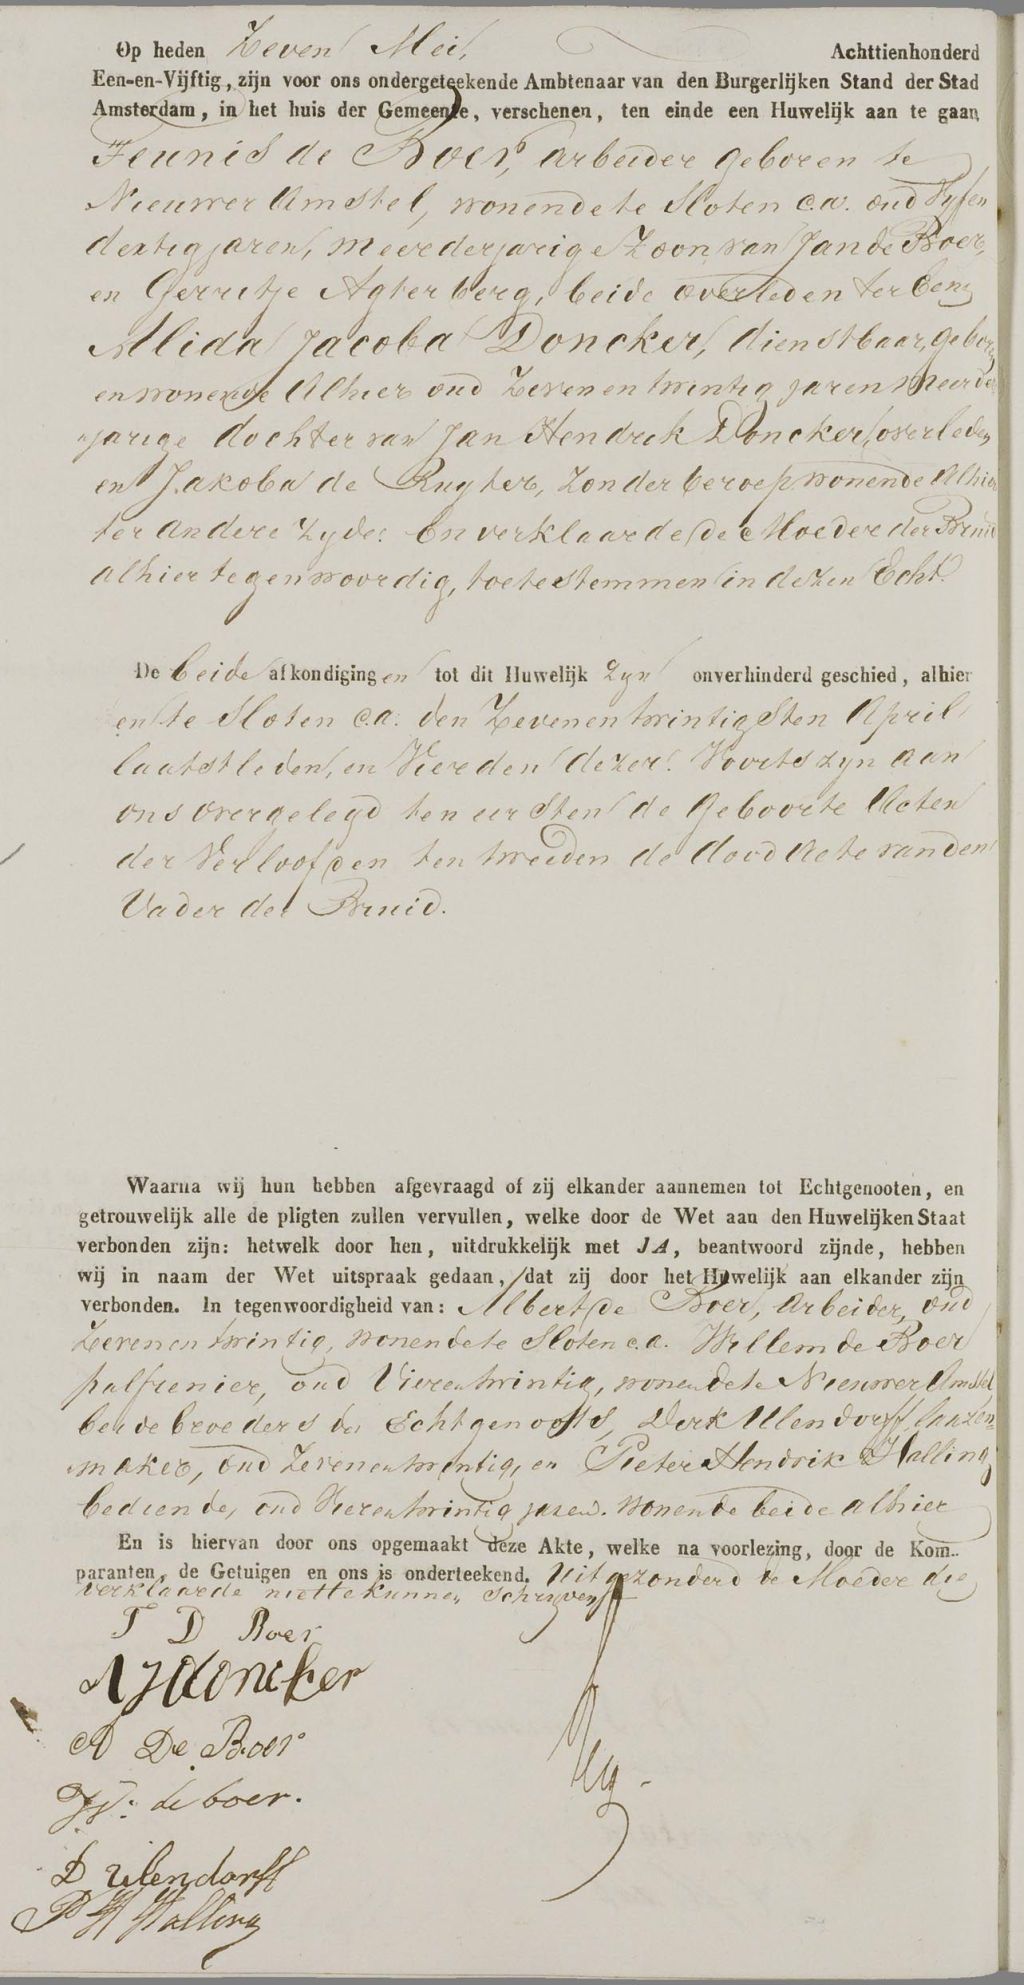 Op heden Zeven Mei, Achttienhonderd
Een-en-Vijftig, zijn voor ons ondergeteekende Ambtenaar van den Burgerlijken Stand der Stad
Amsterdam, in het huis der Gemeente, verschenen, ten einde een Huwelijk aan te gaan
Teunis de Boer, arbeider geboren te
Nieuwer Amstel, wonende te Sloten c.a. oud Vyfen
dertig jaren, meerderjarige Zoon van Jan de Boer,
en Gerritje Agterberg, beide overleden ter Eenz
Alida Jacoba Doncker, dienstbaar, gebor
en wonende Alhier oud Zevenentwintig jaren meerder
jarige dochter van Jan Hendrik Doncker, overleden
en Jakoba de Rugter, zonder beroep wonende Alhier
ter andere zyde. En verklaarde de Moeder der Bruid
alhier tegenwoordig, toetestemmen in dezen Echt.
De beide afkondigingen tot dit Huwelijk zyn onverhinderd geschied, alhier
en te Sloten c.a. den Zevenentwintigsten April
laatstleden, en Vierden dezer. Voorts zyn aan
ons overgelegd ten eersten de Geboorte Acten
der Verloofden ten tweeden de dood Acte van den
Vader der Bruid.
Waarna wij hun hebben afgevraagd of zij elkander aannemen tot Echtgenooten, en
getrouwelijk alle de pligten zullen vervullen, welke door de Wet aan den Huwelijken Staat
verbonden zijn: hetwelk door hen, uitdrukkelijk met JA, beantwoord zijnde, hebben
wij in naam der Wet uitspraak gedaan, dat zij door het Huwelijk aan elkander zijn
verbonden. In tegenwoordigheid van: Albert de Boer, Arbeider, oud
Zevenentwintig, wonende te Sloten c.a. Willem de Boer
palfrenier, oud Vierentwintig, wonende te Nieuwer Amstel
beide broeders der Echtgenoots, Derk Ulendorff, laazen
maker, oud Zevenentwintig, en Pieter Hendrik Halling
bediende, oud Vierentwintig jaren. wonende beide alhier
En is hiervan door ons opgemaakt deze Akte, welke na voorlezing, door de Kom-
paranten, de Getuigen en ons is onderteekend. Uitgezonderd de Moeder die
verklaarde niet te kunnen schryven
T D Boer
A J doncker
A De Boer
W. de boer.
D Ulendorff
P H Halling